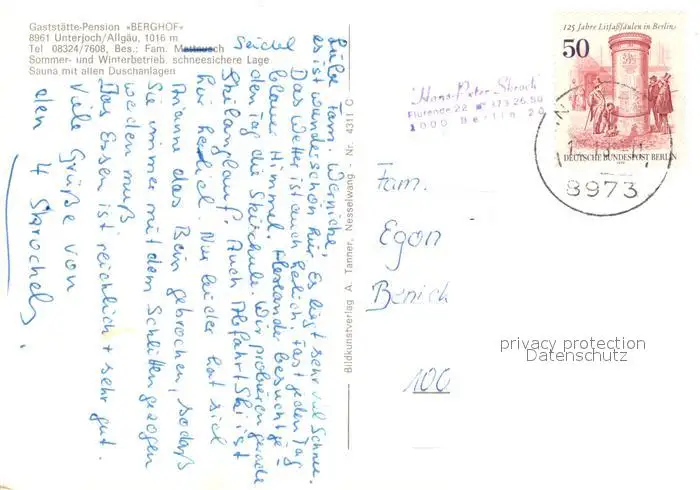 Gaststätte-Pension «BERGHOF»
8961 Unterjoch/Allgäu, 1016 m
Tel 08324/7608, Bes.: Fam. Mattausch
Seidel
Sommer- und Winterbetrieb, schneesichere Lage
Sauna mit allen Duschanlagen
Liebe Fam.
es ist wunderschön hier. Es liegt sehr viel Schnee.
Das Wetter ist auch herlich. Fast jeden Tag
blauer Himmel. besucht je-
den Tag die Skischule. Wir probieren gerade
Skilanglauf. Auch Abfahrtski ist
hier herlich. Nur leider hat sich
Arianne das Bein gebrochen, sodaß
Sie immer mit dem Schlitten gezogen
werden muß.
Das Essen ist reichlich + sehr gut.
Viele Grüße von
den 4 Skrochels.
Bildkunstverlag A. Tanner, Nesselwang - Nr. 4311 C
Hans-Peter Skroch
1000 Berlin 20
125 Jahre Litfaßsäulen in Berlin
50
DEUTSCHE BUNDESPOST BERLIN
8973
Fam.
Egon
Benick
100
privacy protection
Datenschutz